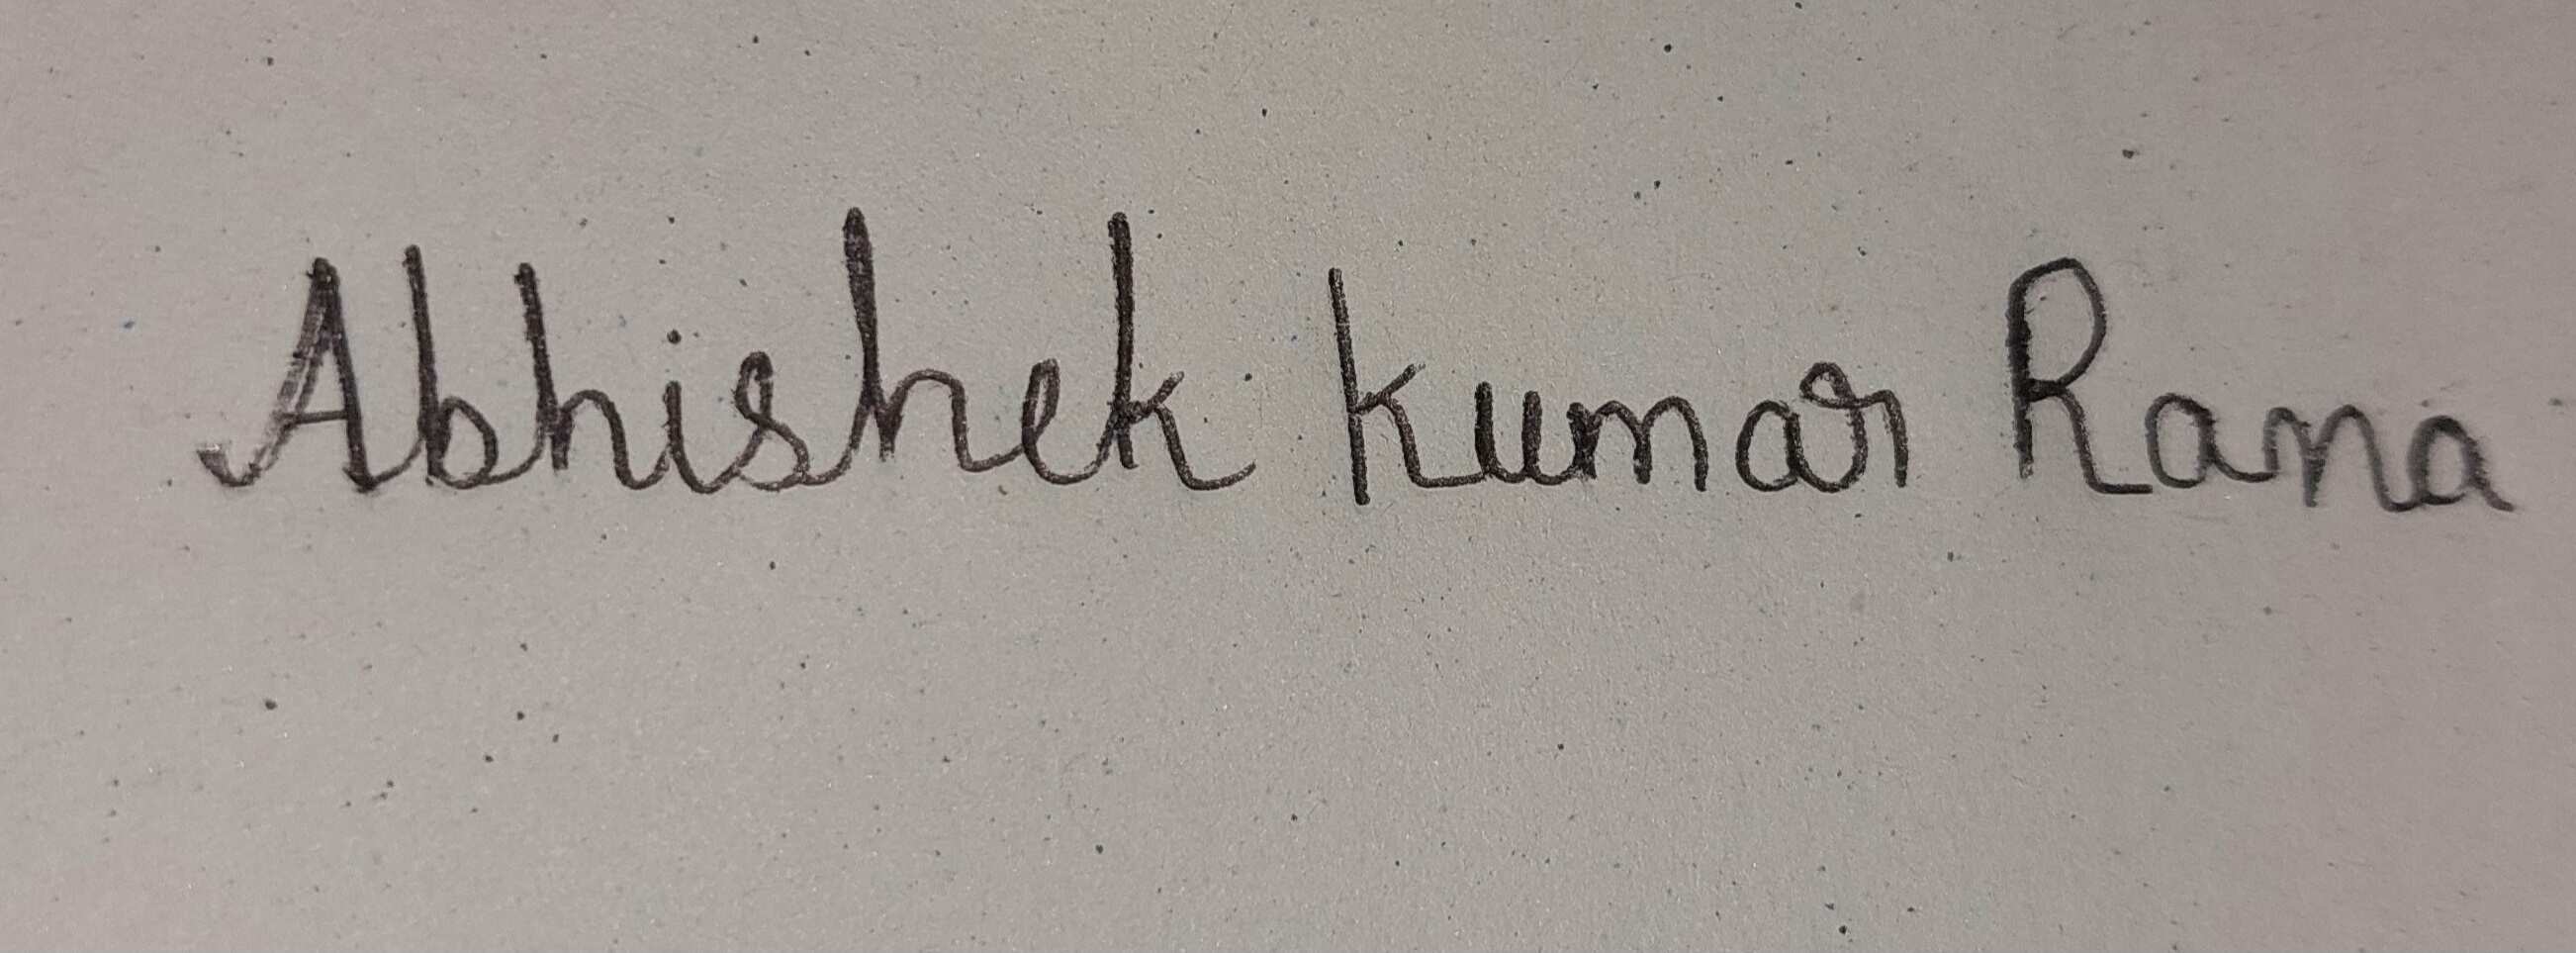 Abhishek kumar Rana